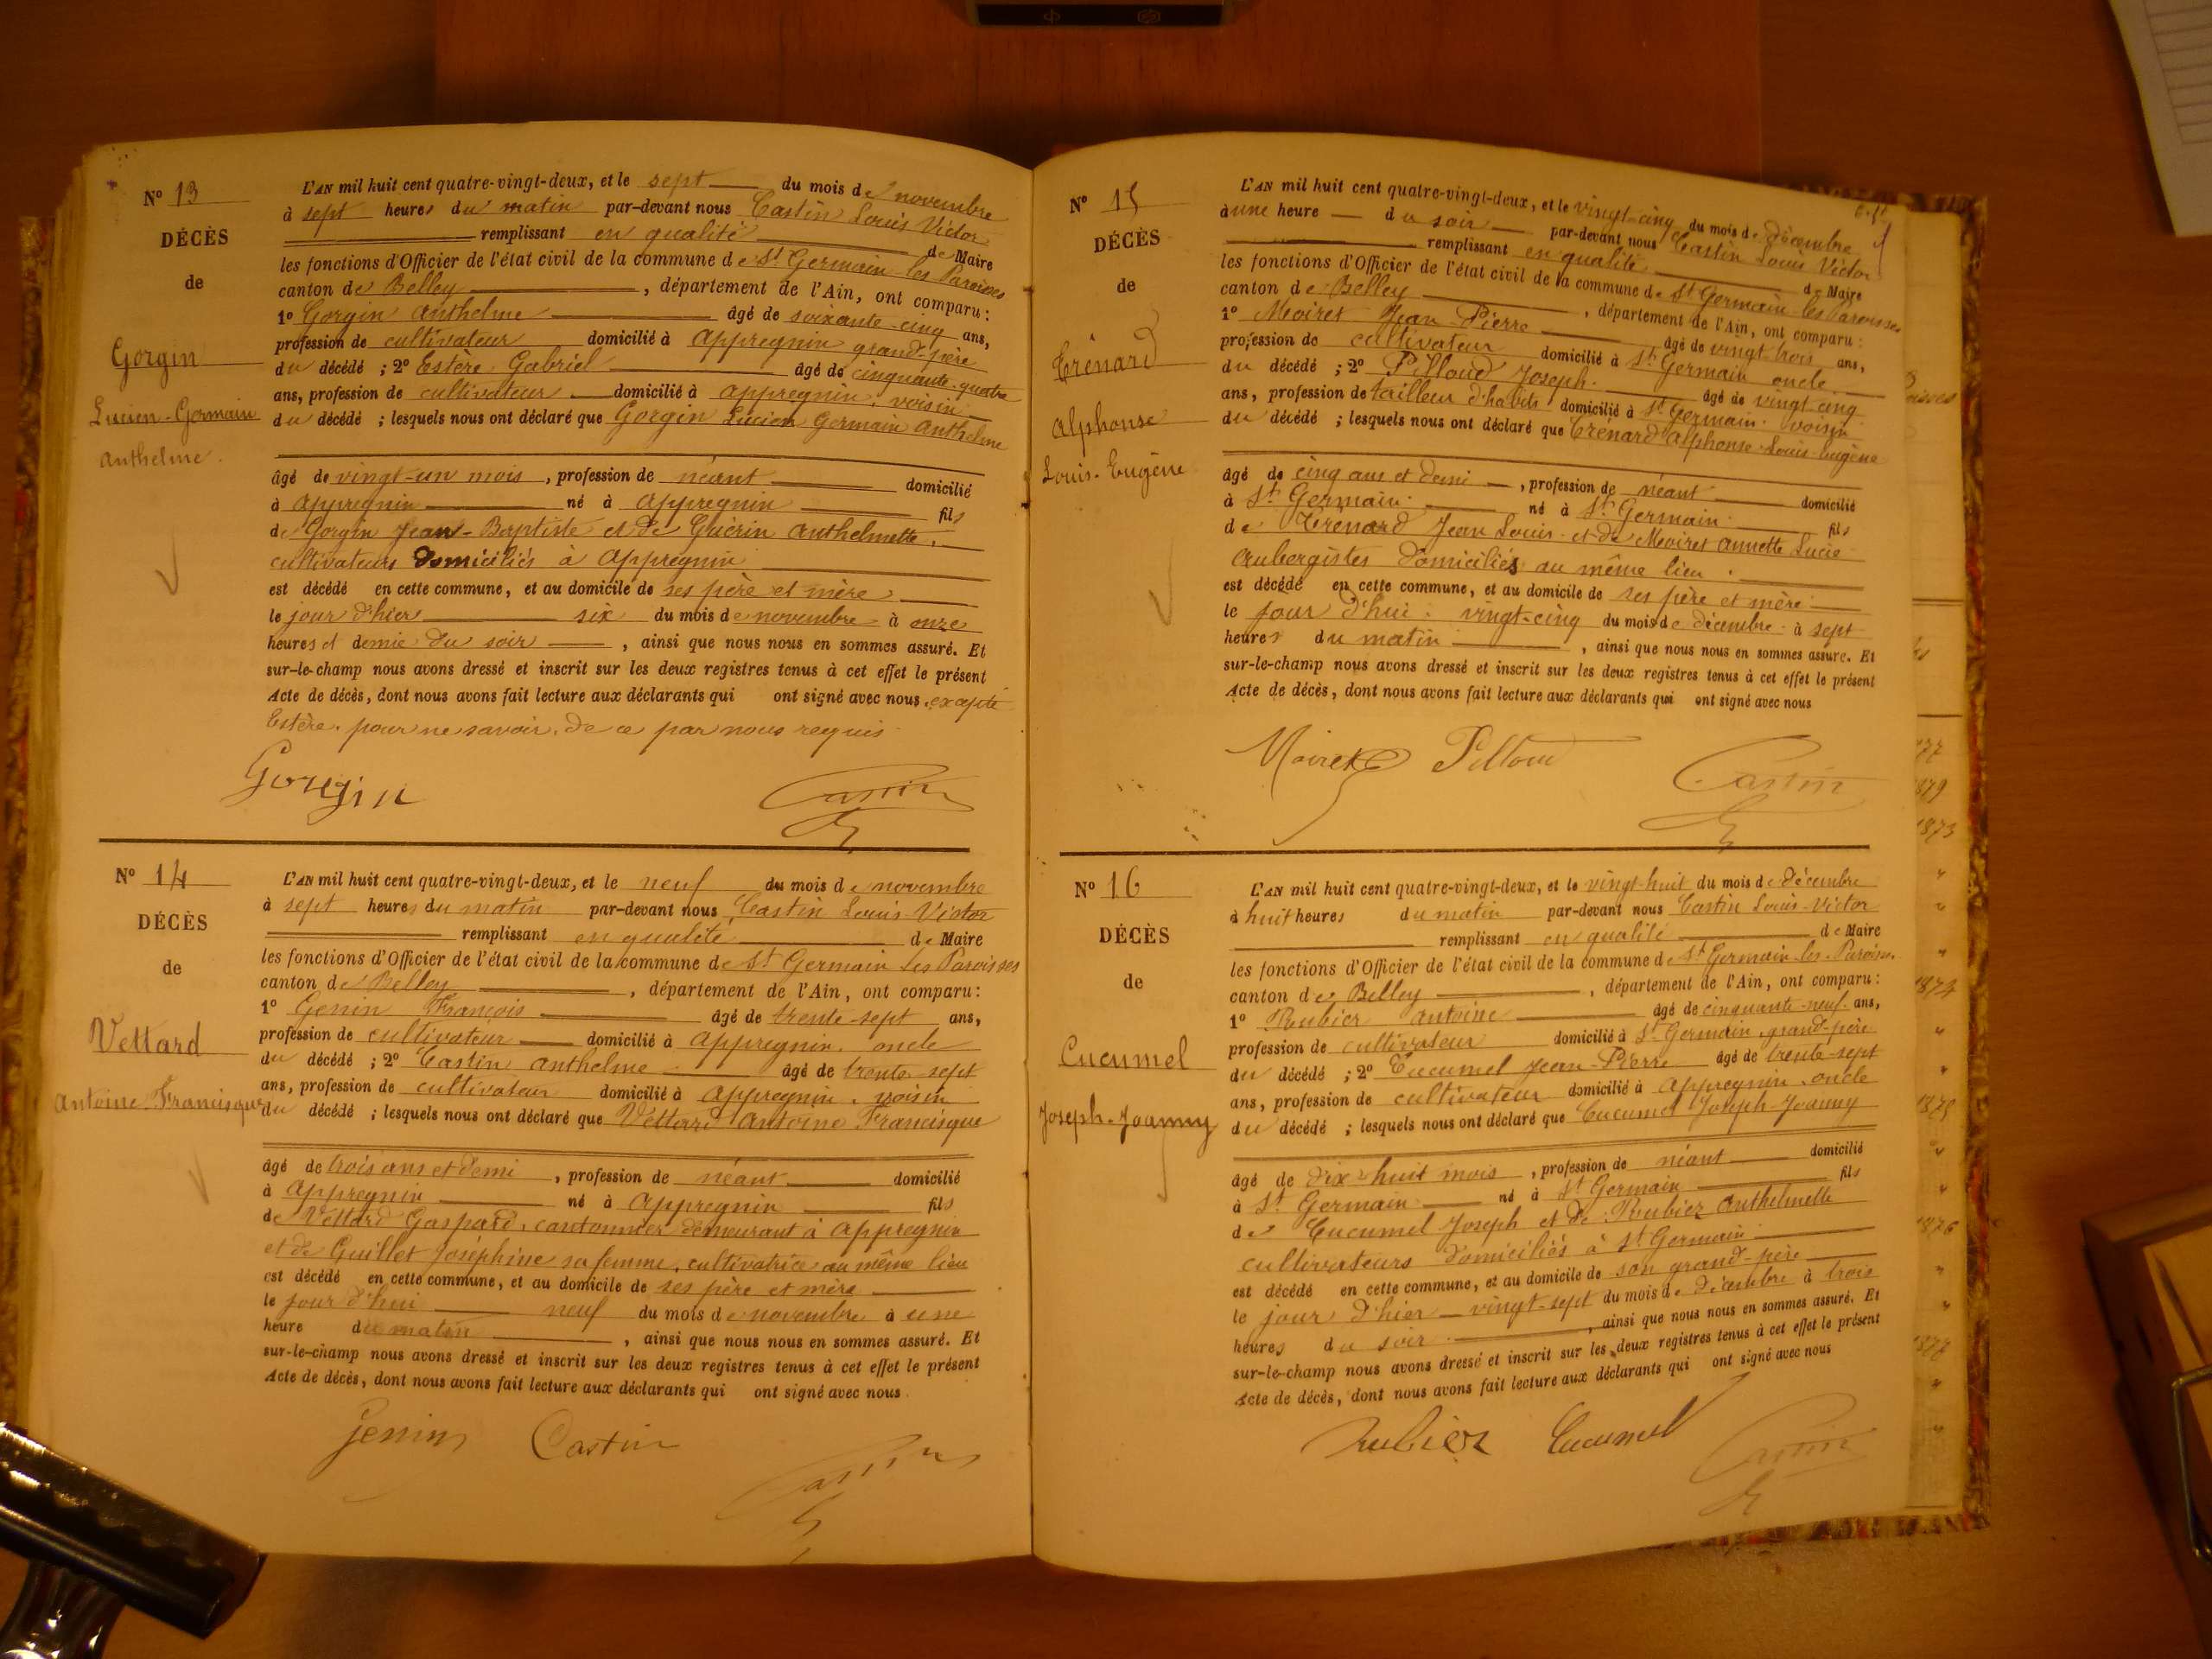 Nº 13
DÉCÈS
de
Gorgin
Lucien-Germain
Anthelme.
L'AN mil huit cent quatre-vingt-deux, et le sept du mois de novembre
à sept heures du matin par-devant nous Castin Louis Victor
remplissant en qualité de Maire
les fonctions d'Officier de l'état civil de la commune de St Germain les Paroisses
canton de Belley, département de l'Ain, ont comparu :
1º Gorgin Anthelme âgé de soixante-cinq ans,
profession de cultivateur domicilié à Appregnin grand-père
du décédé ; 2º Estère Gabriel âgé de cinquante-quatre
ans, profession de cultivateur domicilié à Appregnin, voisin
du décédé ; lesquels nous ont déclaré que Gorgin Lucien Germain Anthelme
âgé de vingt-un mois, profession de néant domicilié
à Appregnin né à Appregnin fils
de Gorgin Jean-Baptiste et de Guérin Anthelmette,
cultivateurs domiciliés à Appregnin
est décédé en cette commune, et au domicile de ses père et mère
le jour d'hier six du mois de novembre à onze
heures et demie du soir, ainsi que nous nous en sommes assuré. Et
sur-le-champ nous avons dressé et inscrit sur les deux registres tenus à cet effet le présent
Acte de décès, dont nous avons fait lecture aux déclarants qui ont signé avec nous, excepté
Estère, pour ne savoir, de ce par nous requis.
Gorgin Castin
Nº 14
DÉCÈS
de
Vettard
Antoine Francisque
L'AN mil huit cent quatre-vingt-deux, et le neuf du mois de novembre
à sept heures du matin par-devant nous Castin Louis-Victor
remplissant en qualité de Maire
les fonctions d'Officier de l'état civil de la commune de St Germain les Paroisses
canton de Belley, département de l'Ain, ont comparu :
1º Genin François âgé de trente-sept ans,
profession de cultivateur domicilié à Appregnin, oncle
du décédé ; 2º Castin Anthelme âgé de trente-sept
ans, profession de cultivateur domicilié à Appregnin, voisin
du décédé ; lesquels nous ont déclaré que Vettard Antoine Francisque
âgé de trois ans et demi, profession de néant domicilié
à Appregnin né à Appregnin fils
de Vettard Gaspard, cantonnier demeurant à Appregnin
et de Guillet Joséphine sa femme, cultivatrice au même lieu
est décédé en cette commune, et au domicile de ses père et mère
le jour d'hui neuf du mois de novembre à une
heure du matin, ainsi que nous nous en sommes assuré. Et
sur-le-champ nous avons dressé et inscrit sur les deux registres tenus à cet effet le présent
Acte de décès, dont nous avons fait lecture aux déclarants qui ont signé avec nous.
Genin Castin Castin
Nº 15
DÉCÈS
de
Trénard
Alphonse
Louis-Eugène
L'AN mil huit cent quatre-vingt-deux, et le vingt-cinq du mois de décembre
à une heure du soir par-devant nous Castin Louis Victor
remplissant en qualité de Maire
les fonctions d'Officier de l'état civil de la commune de St Germain-les-Paroisses
canton de Belley, département de l'Ain, ont comparu :
1º Moiret Jean-Pierre âgé de vingt-trois ans,
profession de cultivateur domicilié à St Germain oncle
du décédé ; 2º Pilloud Joseph âgé de vingt-cinq
ans, profession de tailleur d'habits domicilié à St Germain, voisin
du décédé ; lesquels nous ont déclaré que Trénard Alphonse-Louis-Eugène
âgé de cinq ans et demi, profession de néant domicilié
à St Germain né à St Germain fils
de Trénard Jean Louis et de Moiret Annette Lucie
Aubergistes domiciliés au même lieu.
est décédé en cette commune, et au domicile de ses père et mère
le jour d'hui vingt-cinq du mois de décembre à sept
heures du matin, ainsi que nous nous en sommes assuré. Et
sur-le-champ nous avons dressé et inscrit sur les deux registres tenus à cet effet le présent
Acte de décès, dont nous avons fait lecture aux déclarants qui ont signé avec nous
Moiret Pilloud Castin
Nº 16
DÉCÈS
de
Cucumel
Joseph-Joanny
L'AN mil huit cent quatre-vingt-deux, et le vingt-huit du mois de décembre
à huit heures du matin par-devant nous Castin Louis-Victor
remplissant en qualité de Maire
les fonctions d'Officier de l'état civil de la commune de St Germain-les-Paroisses
canton de Belley, département de l'Ain, ont comparu :
1º Rubier Antoine âgé de cinquante-neuf ans,
profession de cultivateur domicilié à St Germain, grand-père
du décédé ; 2º Cucumel Jean-Pierre âgé de trente-sept
ans, profession de cultivateur domicilié à Appregnin, oncle
du décédé ; lesquels nous ont déclaré que Cucumel Joseph-Joanny
âgé de dix-huit mois, profession de néant domicilié
à St Germain né à St Germain fils
de Cucumel Joseph et de Rubier Anthelmette
cultivateurs domiciliés à St Germain
est décédé en cette commune, et au domicile de son grand-père
le jour d'hier vingt-sept du mois de décembre à trois
heures du soir, ainsi que nous nous en sommes assuré. Et
sur-le-champ nous avons dressé et inscrit sur les deux registres tenus à cet effet le présent
Acte de décès, dont nous avons fait lecture aux déclarants qui ont signé avec nous
Rubier Cucumel Castin
1879
1873
1874
1875
1876
1877